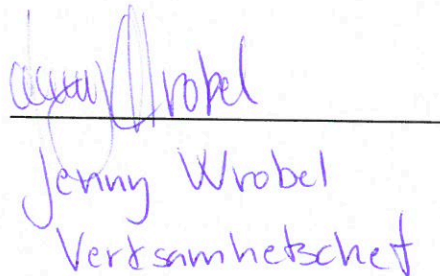 Jenny Wrobel
Jenny Wrobel
Verksamhetschef